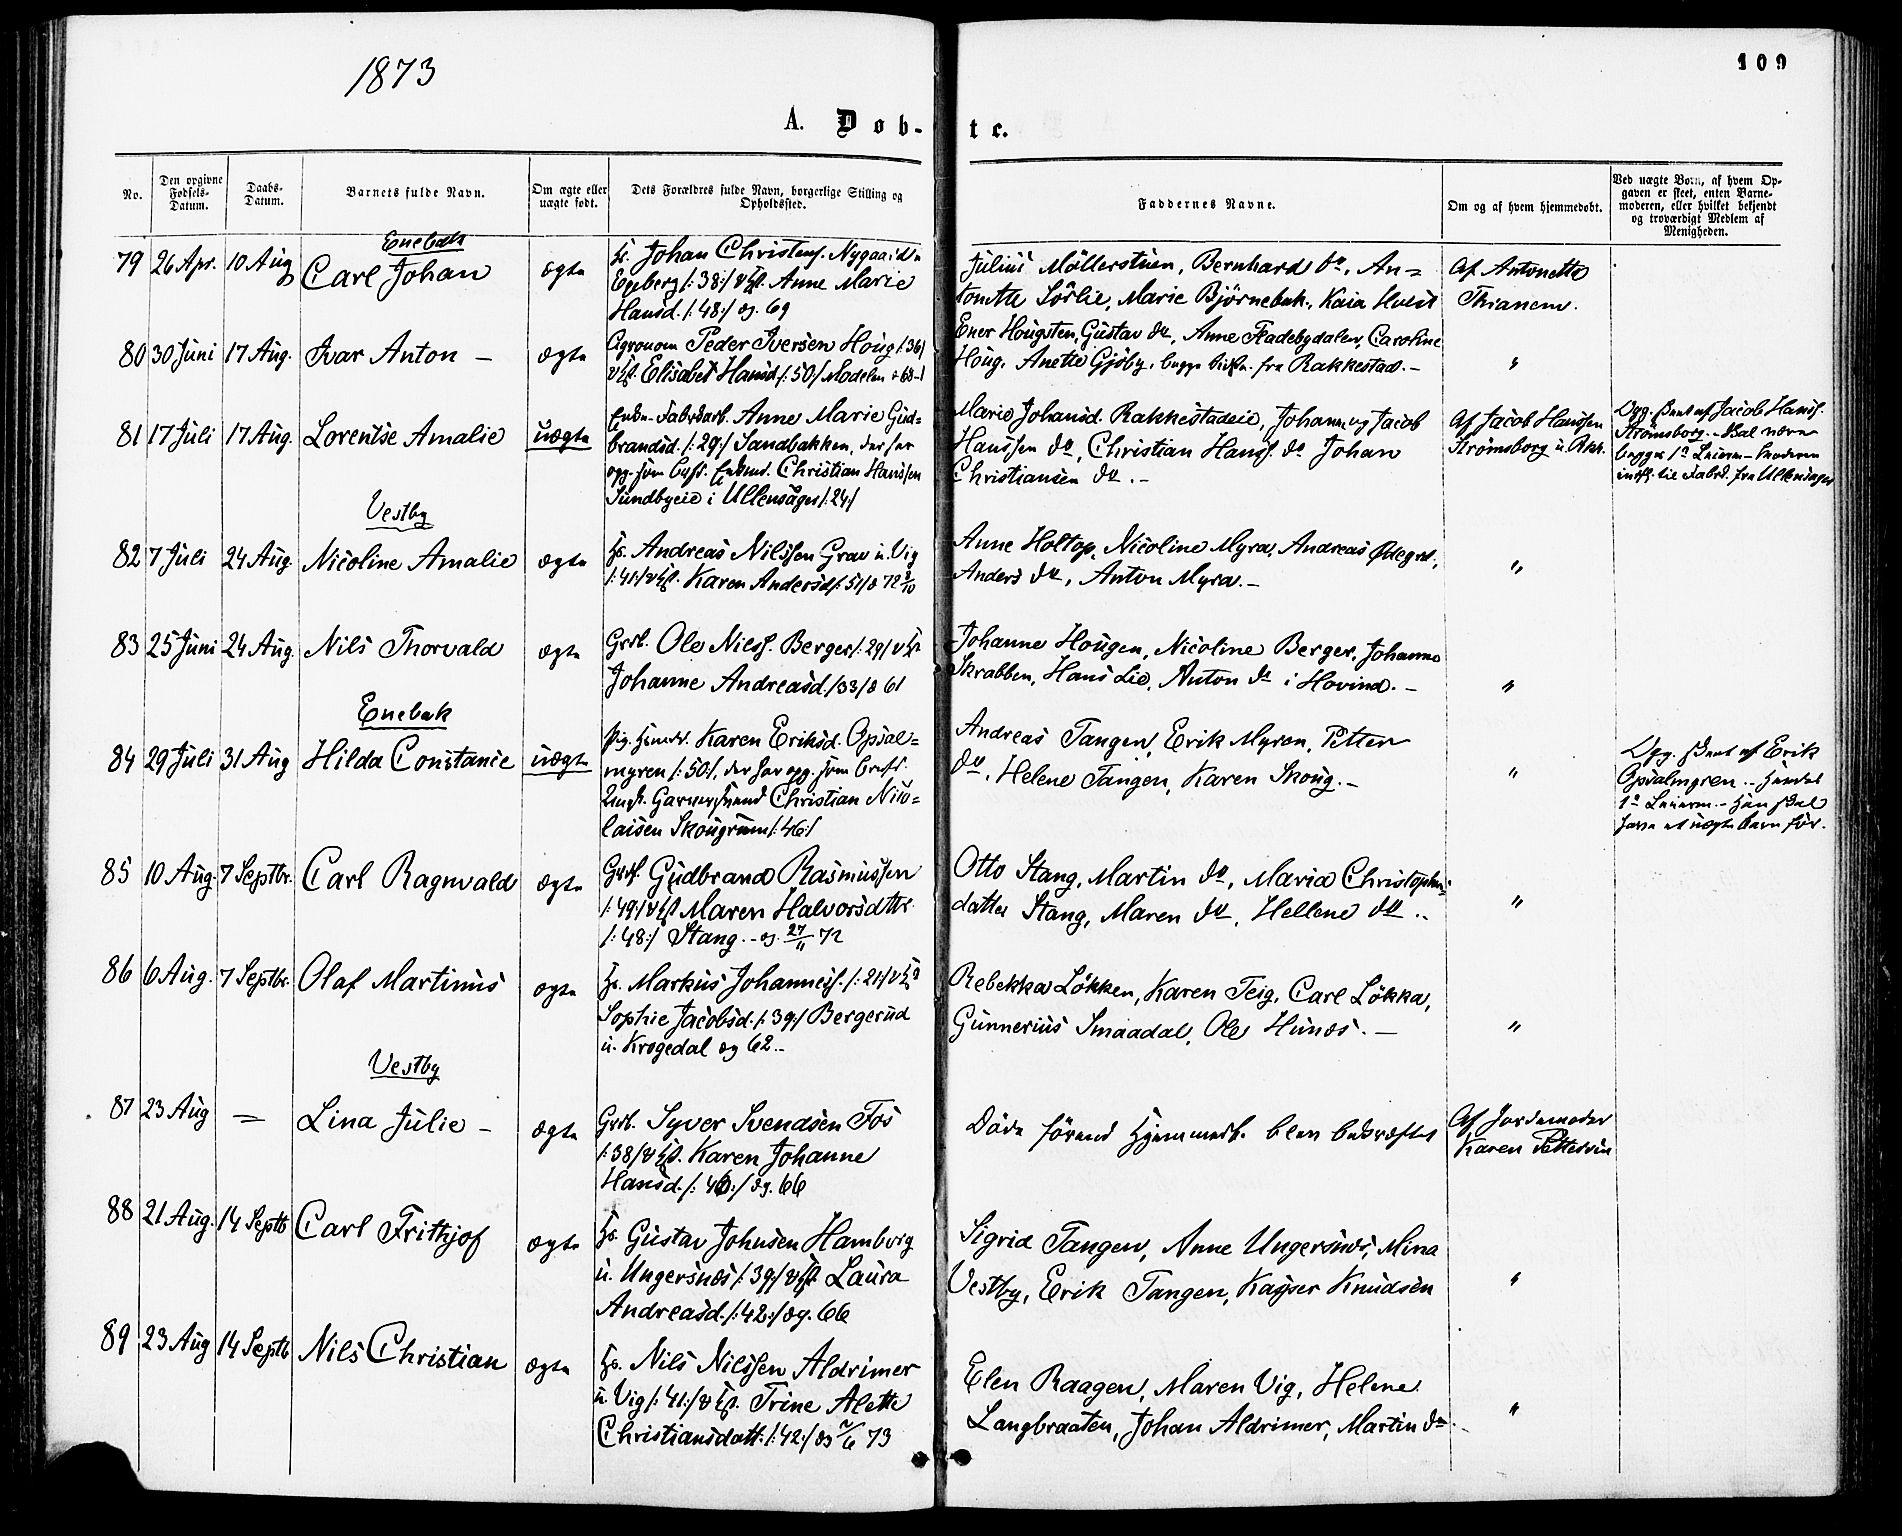 1873
109
A. Døb-
te.
No.
Den opgivne Fødsels-Datum.
Daabs-Datum.
Barnets fulde Navn.
Om ægte eller uægte født.
Dets Forældres fulde Navn, borgerlige Stilling og Opholdssted.
Faddernes Navne.
Om og af hvem hjemmedøbt.
Ved uægte Børn, af hvem Opgaven er skeet, enten Barnemoderen, eller hvilket bekjendt og troværdigt Medlem af Menigheden.
Enebak
79 26 Apr. 10 Aug Carl Johan ægte
Johan Christens. Nygaard
Egeberg /:38:/ Anne Marie
Hansd. /:48:/ og. 69
Julius Möllerstuen, Bernhard do, An=
tonette Sörlie, Marie Björnebek, Kaia
Af Antonette
80 30 Juni 17 Aug. Ivar Anton - ægte
Agronom Peder Iversen Houg /36/
Elisabet Hansd. /:50:/ Modelen
Ener Hougsten, Gustav do, Anne Fladebydalen, Caroline
Houg, Anette Gjöby, begge fra Rakkestad. -
"
81 17 Juli 17 Aug. Lorentse Amalie uægte
Anne Marie Gud=
brandsd. /:29:/ Sandbakken, der har
opg. som Christian Hanssen
Sundbyeie i Ullensager /:24:/
Marie Johansd. Rakkestadeie, Johan og Jacob
Hanssen do, Christian Hanss. do Johan
Christiansen do. -
Af Jacob Hanssen
Strömsborg u. Rkk.
Opg. af Jacob Hanss.
Strömsborg. - Skal være
begges 1ste Leierm. - Moderen
til fra Ullensager
Vestby
82 7 Juli 24 Aug. Nicoline Amalie ægte
Andreas Nilssen Grav u. Vig
/:41:/ Karen Andersd /:51/
Anne Holtop, Nicoline Myra, Andreas Ödegrd,
Anders do, Anton Myra. -
"
83 25 Juni 24 Aug. Nils Thorvald ægte
Grdb. Ole Nielss. Berger /:29/
Johanne Andreasd. /33/ 61
Johanne Hougen, Nicoline Berger, Johanne
Skrabben, Hans Lie, Anton do i Hovind. -
"
Enebak
84 29 Juli 31 Aug Hilda Constance uægte
Karen Eriksd. Opsal=
myren /:50:/, der har opg. som
Christian Nico=
laisen Skougrum /:46:/
Andreas Tangen, Erik Myren, Petter
do, Helene Tangen, Karen Skoug. -
"
Opg. af Erik
Opsalmyren. -
1ste Leierm. - Hun skal
have et uægte Barn för.
85 10 Aug. 7 Septbr. Carl Ragnvald ægte
Gudbrand Rasmussen
/:49:/ Maren Halvorsdtr.
/:48:/ Stang. - og. 27/11 72
Otto Stang, Martin do, Maria Christophers=
datter Stang, Maren do, Hellene do. -
"
86 6 Aug. 7 Septbr. Olaf Martinus ægte
Markus Johanness. /:24/
Sophie Jacobsd. /:39:/ Bergerud
u. Krogedal og 62. -
Rebekka Lökken, Karen Teig, Carl Lökka,
Gunnerius Smaadal, Ole Hunæs. -
"
Vestby
87 23 Aug = Lina Julie - ægte
Grdb. Syver Svendsen Fos
/:38/ Karen Johanne
Hansd. /:46:/ og. 66
Döde förend Hjemmedb. blev bekræftet
Af Jordemoder
Karen
88 21 Aug. 14 Septb Carl Frithjof ægte
Gustav Johnsen Hamborg
u. Ungersnæs /:39:/ Laura
Andreasd. /:42:/ og. 66
Sigrid Tangen, Anne Ungersnæs, Mina
Vestby, Erik Tangen, Kayser Knudsen
"
89 23 Aug 14 Septb Nils Christian ægte
Nils Nilssen Aldrimer
u. Vig /:41:/ Trine Alette
Christiansdatt. /:42:/ 73
Elen Raagen, Maren Vig, Helene
Langbraaten, Johan Aldrimer, Martin do. -
"